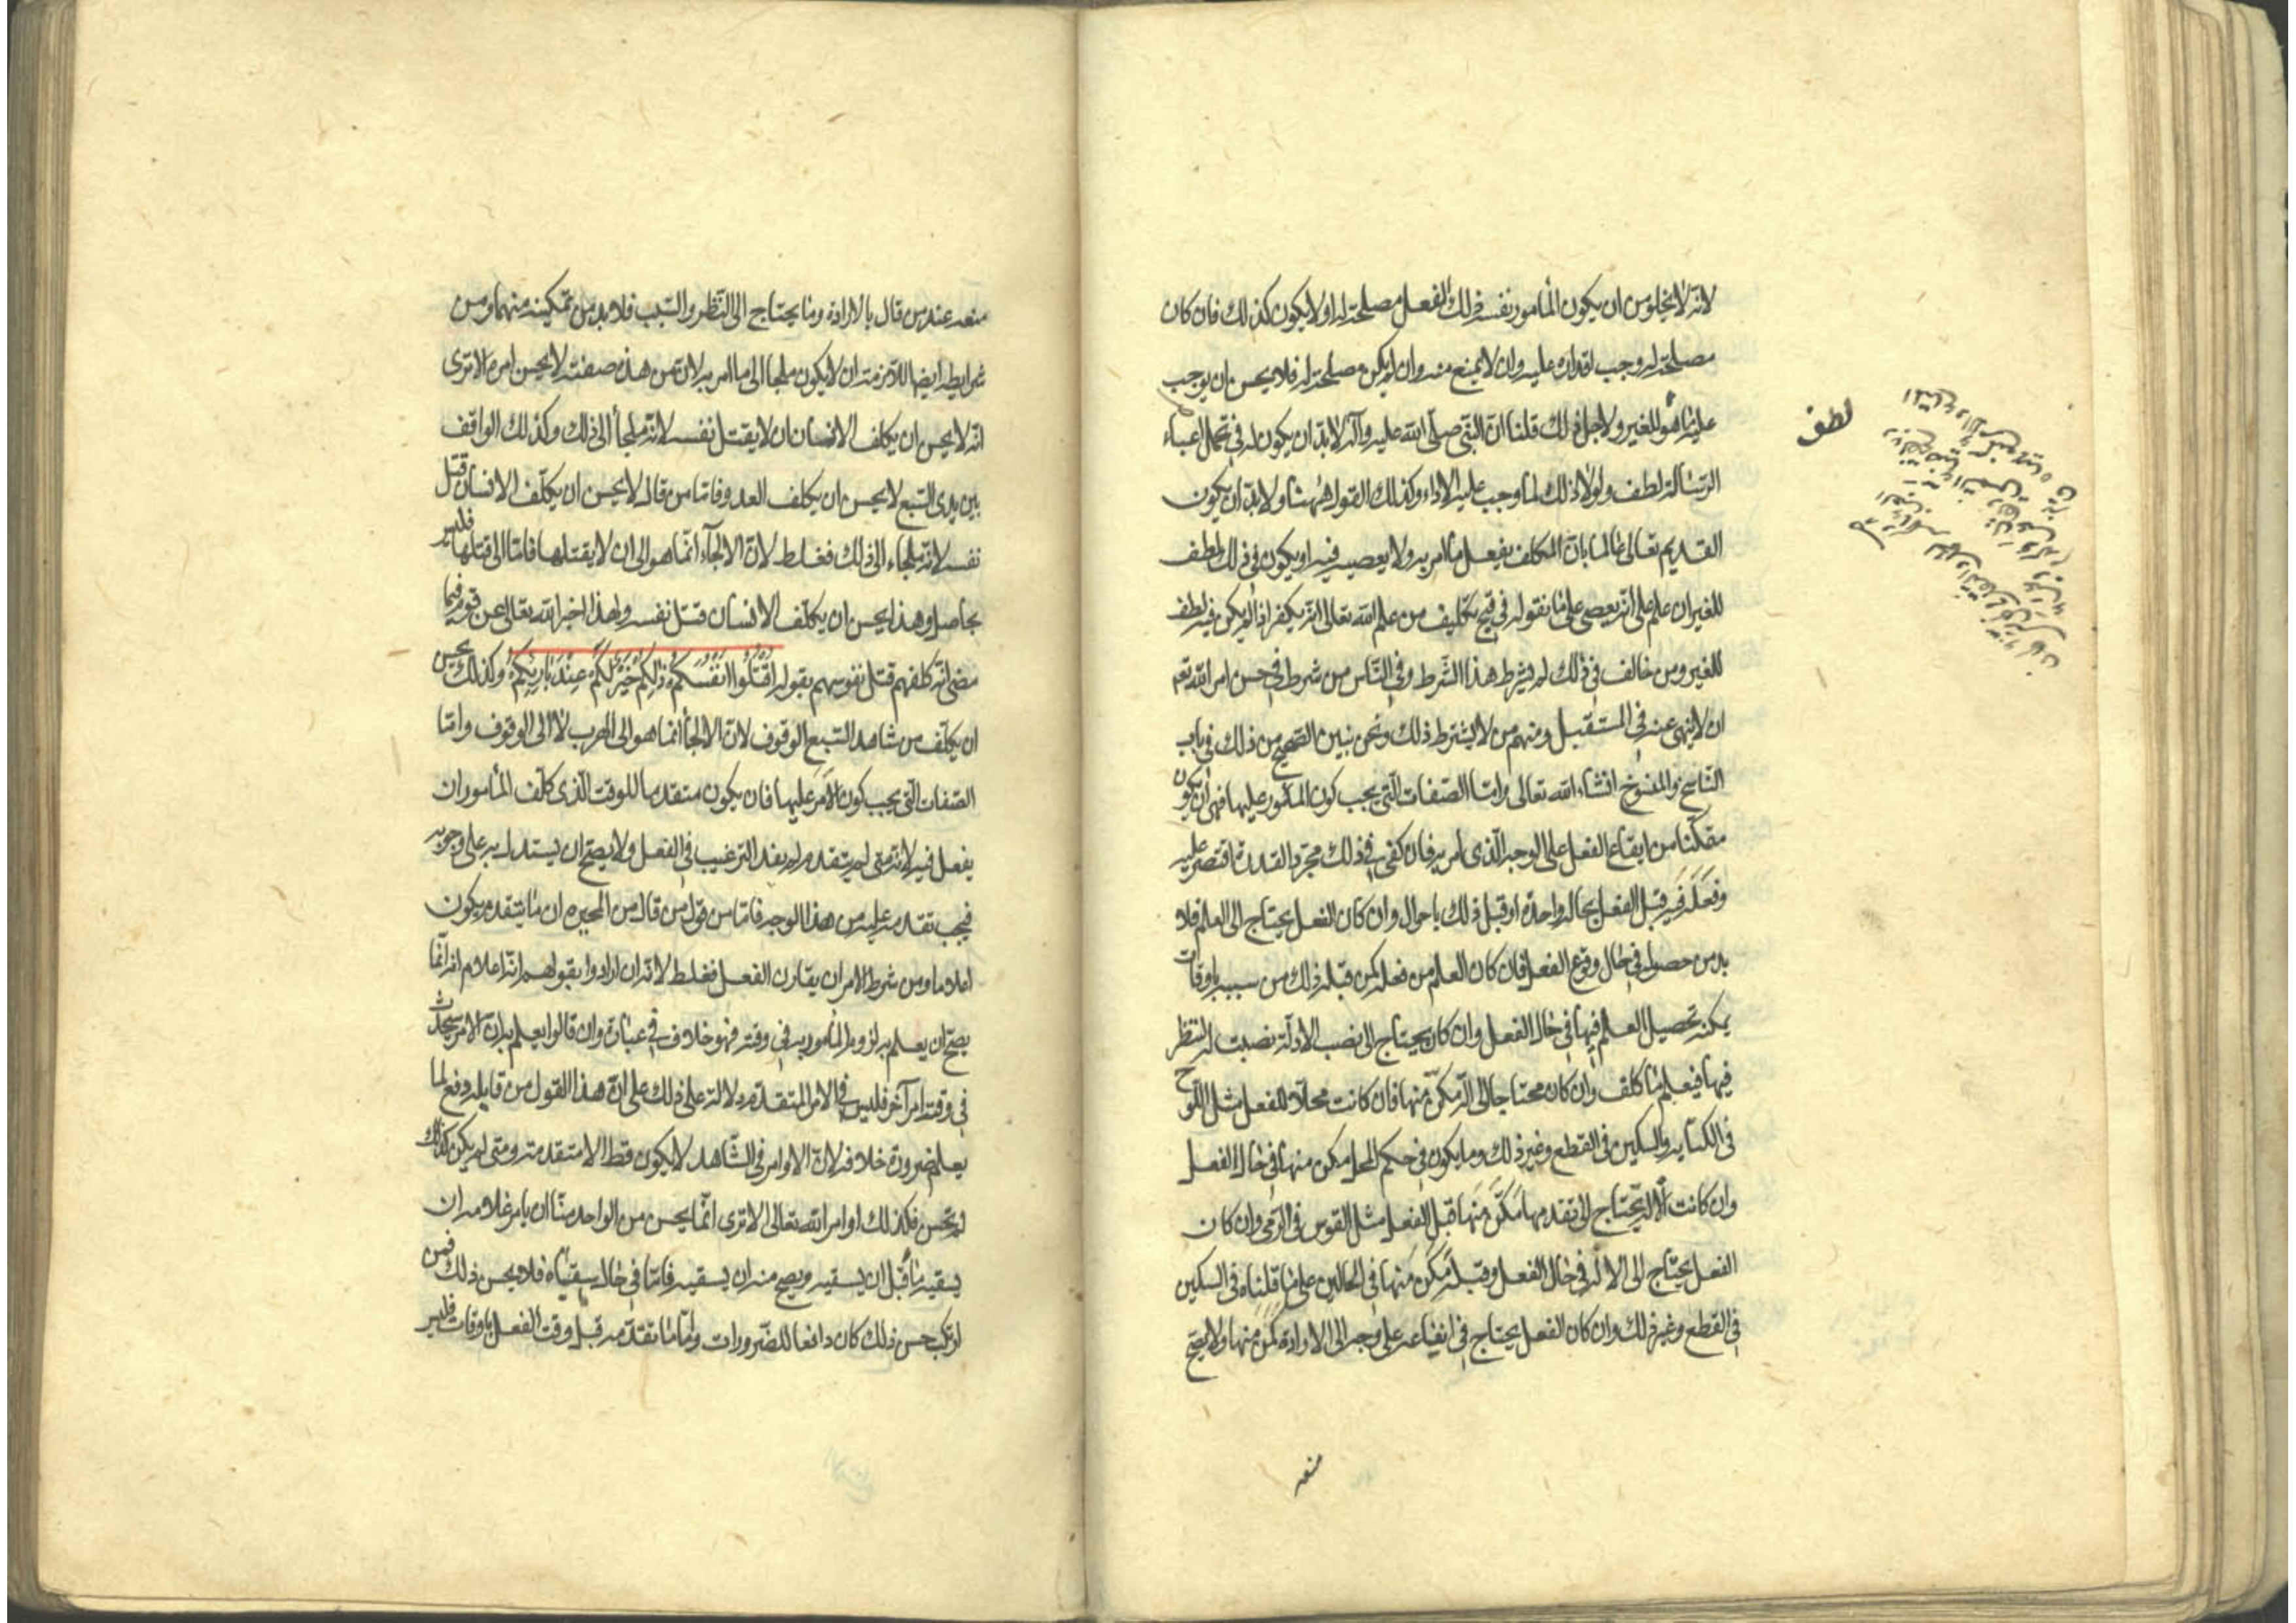 لانّه لا يخلو من ان يكون المأمور نفسه ذلك الفعل مصلحة له او لا يكون كذلك فان كان
مصلحة له وجب اقداره عليه وان لا يمنع منه وان لم يكن مصلحة له فلا يحسن ان يوجب
عليه ما هو للغير ولاجل ذلك قلنا انّ النبّى صلّى الله عليه وآله لابدّ ان يكون له فى تحمل اعباء
الرّسالة لطف ولولا ذلك لما وجب عليه الاداء وكذلك القول هٰهنا ولابدّ ان يكون
القديم تعالى عالما بانّ المكلف يفعل ما امر به ولا يعصيه فيه او يكون فى ذلك لطف
للغير ان علم على انّه يعصى على ما نقوله فى قبح تكليف من علم الله تعالى انّه يكفر اذا لم يكن فيه لطف
للغير ومن خالف فى ذلك لم يشرط هذا الشّرط وفى النّاس من شرط فى حسن امر الله تع
ان لا ينهى عنه فى المستقبل ومنهم من لا يشترط ذلك ونحن نبيّن الصّحيح من ذلك فى باب
النّاسخ والمنسوخ انشاء الله تعالى وامّا الصّفات الّتى يجب كون المأمور عليها فهى ان يكون
متمكّنا من ايقاع الفعل على الوجه الّذى امر به فان كفى فى ذلك مجرّد القدرة اقتصر عليه
وفعلت فيه قبل الفعل بحالة واحدة او قبل ذلك باحوال وان كان الفعل يحتاج الى العلم فلا
بد من حصوله فى حال وقوع الفعل فان كان العلم من فعله مكن قبله ذلك من سببه باوقات
يمكنه تحصيل العلم فيها فى حال الفعل وان كان يحتاج الى نصب الادلّة نصبت له لينظر
فيها فيعلم ما كلف وان كان محتاجا الى آلة مكّن منها فان كانت محلّا للفعل مثل اللوح
فى الكتابه والسكين فى القطع وغير ذلك وما يكون فى حكم المحل مكن منها فى حال الفعل
وان كانت الآلة يحتاج الى تقدمها مكّن منها قبل الفعل مثل القوس فى الرّمى وان كان
الفعل يحتاج الى الالة فى حال الفعل وقبله مكّن منها فى الحالين على ما قلناه فى السكين
فى القطع وغير ذلك وان كان الفعل يحتاج فى ايقاعه على وجه الى الارادة مكن منها ولا يصحّ
منعه
لطف
منعه عند من قال بالارادة وما يحتاج الى النّظر والسّبب فلابد من تمكينه منهما ومن
شرايطه ايضا اللازمة ان لا يكون ملجا الى ما امر به لانّ من هذه صفته لا يحسن امره الا ترى
انّه لا يحسن ان يكلف الانسان ان لا يقتل نفسه لانّه ملجأ الى ذلك وكذلك الواقف
بين يدى السّبع لا يحسن ان يكلف العدو فامّا من قال لا يحسن ان يكلّف الانسان قتل
نفسه لانّه ملجاء الى ذلك فغلط لانّ الالجآء انّما هو الى ان لا يقتلها فامّا الى قتلها فليس
بحاصل ولهذا يحسن ان يكلّف الانسان قتل نفسه ولهذا اخبر الله تعالى عن قوم فيما
مضى انّه كلفهم قتل نفوسهم بقوله اقْتُلُوا انْفُسَكُمْ ذٰلِكُمْ خَيْرٌ لَكُمْ عِنْدَ بَارِئِكُمْ وكذلك يحسن
ان يكلّف من شاهد السّبع الوقوف لانّ الالجأ انّما هو الى الهرب لا الى الوقوف وامّا
الصّفات الّتى يجب كون الامر عليها فان يكون متقدما للوقت الّذى كلّف المأمور ان
يفعل فيه لانّه متى لم يتقدم لم يفد الترغيب فى الفعل ولا يصحّ ان يستدل به على وجوبه
فيجب تقدمه عليه من هذا الوجه فامّا من قول من قال من المجبره ان ما يتقدم يكون
اعلاما ومن شرط الامر ان يقارن الفعل فغلط لانّه ان ارادوا بقولهم انّه اعلام انه انّما
يصحّ ان يعلم به لزوم المأمور به فى وقته فهو خلاف فى عبارة وان قالوا يعلم به انّ الامر سيحدث
فى وقته امر آخر فليس فى الامر المتقدّم دلالة على ذلك على انّ هذا القول من قايله دفع لما
يعلم ضرورة خلافه لانّ الاوامر فى الشّاهد لا يكون قط الا متقدمة ومتى لم يكن كذلك
لم تحسن فكذلك اوامر الله تعالى الا ترى انّما يحسن من الواحد منّا ان يامر غلامه ان
يسقيه ما قبل ان يسقيه ويصح منه ان يسقيه فامّا فى حال سقياه فلا يحسن ذلك فمن
ارتكب حسن ذلك كان دافعا للضّرورات وامّا ما تقدّمه قبل وقت الفعل باوقات فليس